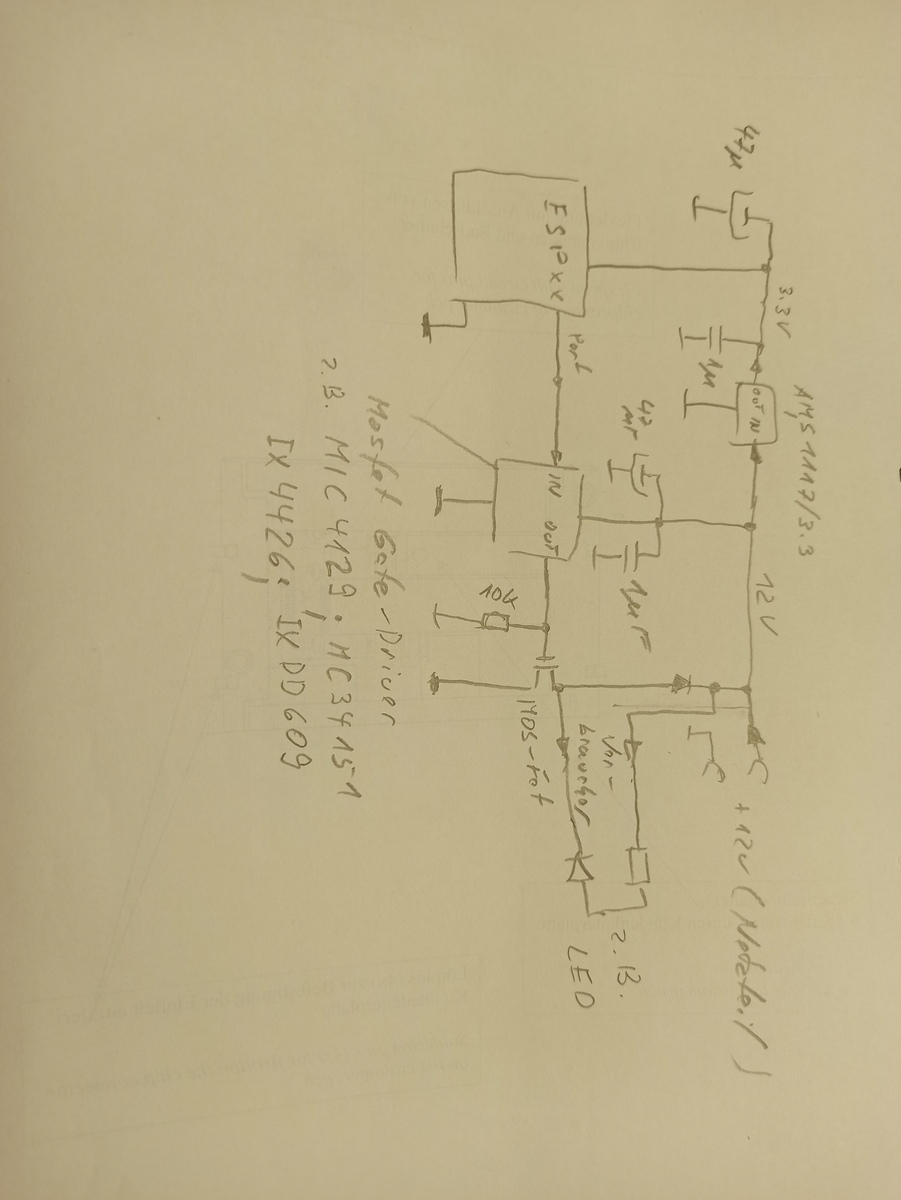 47µ
3.3V
1µ
AMS1117/3.3
OUT IN
12V
+12V (Netzteil)
ESPxx
Port
47
µF
1µF
IN OUT
10k
MOS-Fet
Ver-
braucher
z.B.
LED
Mosfet Gate-Driver
z.B. MIC 4129; MC34151
IX4426; IXDD609